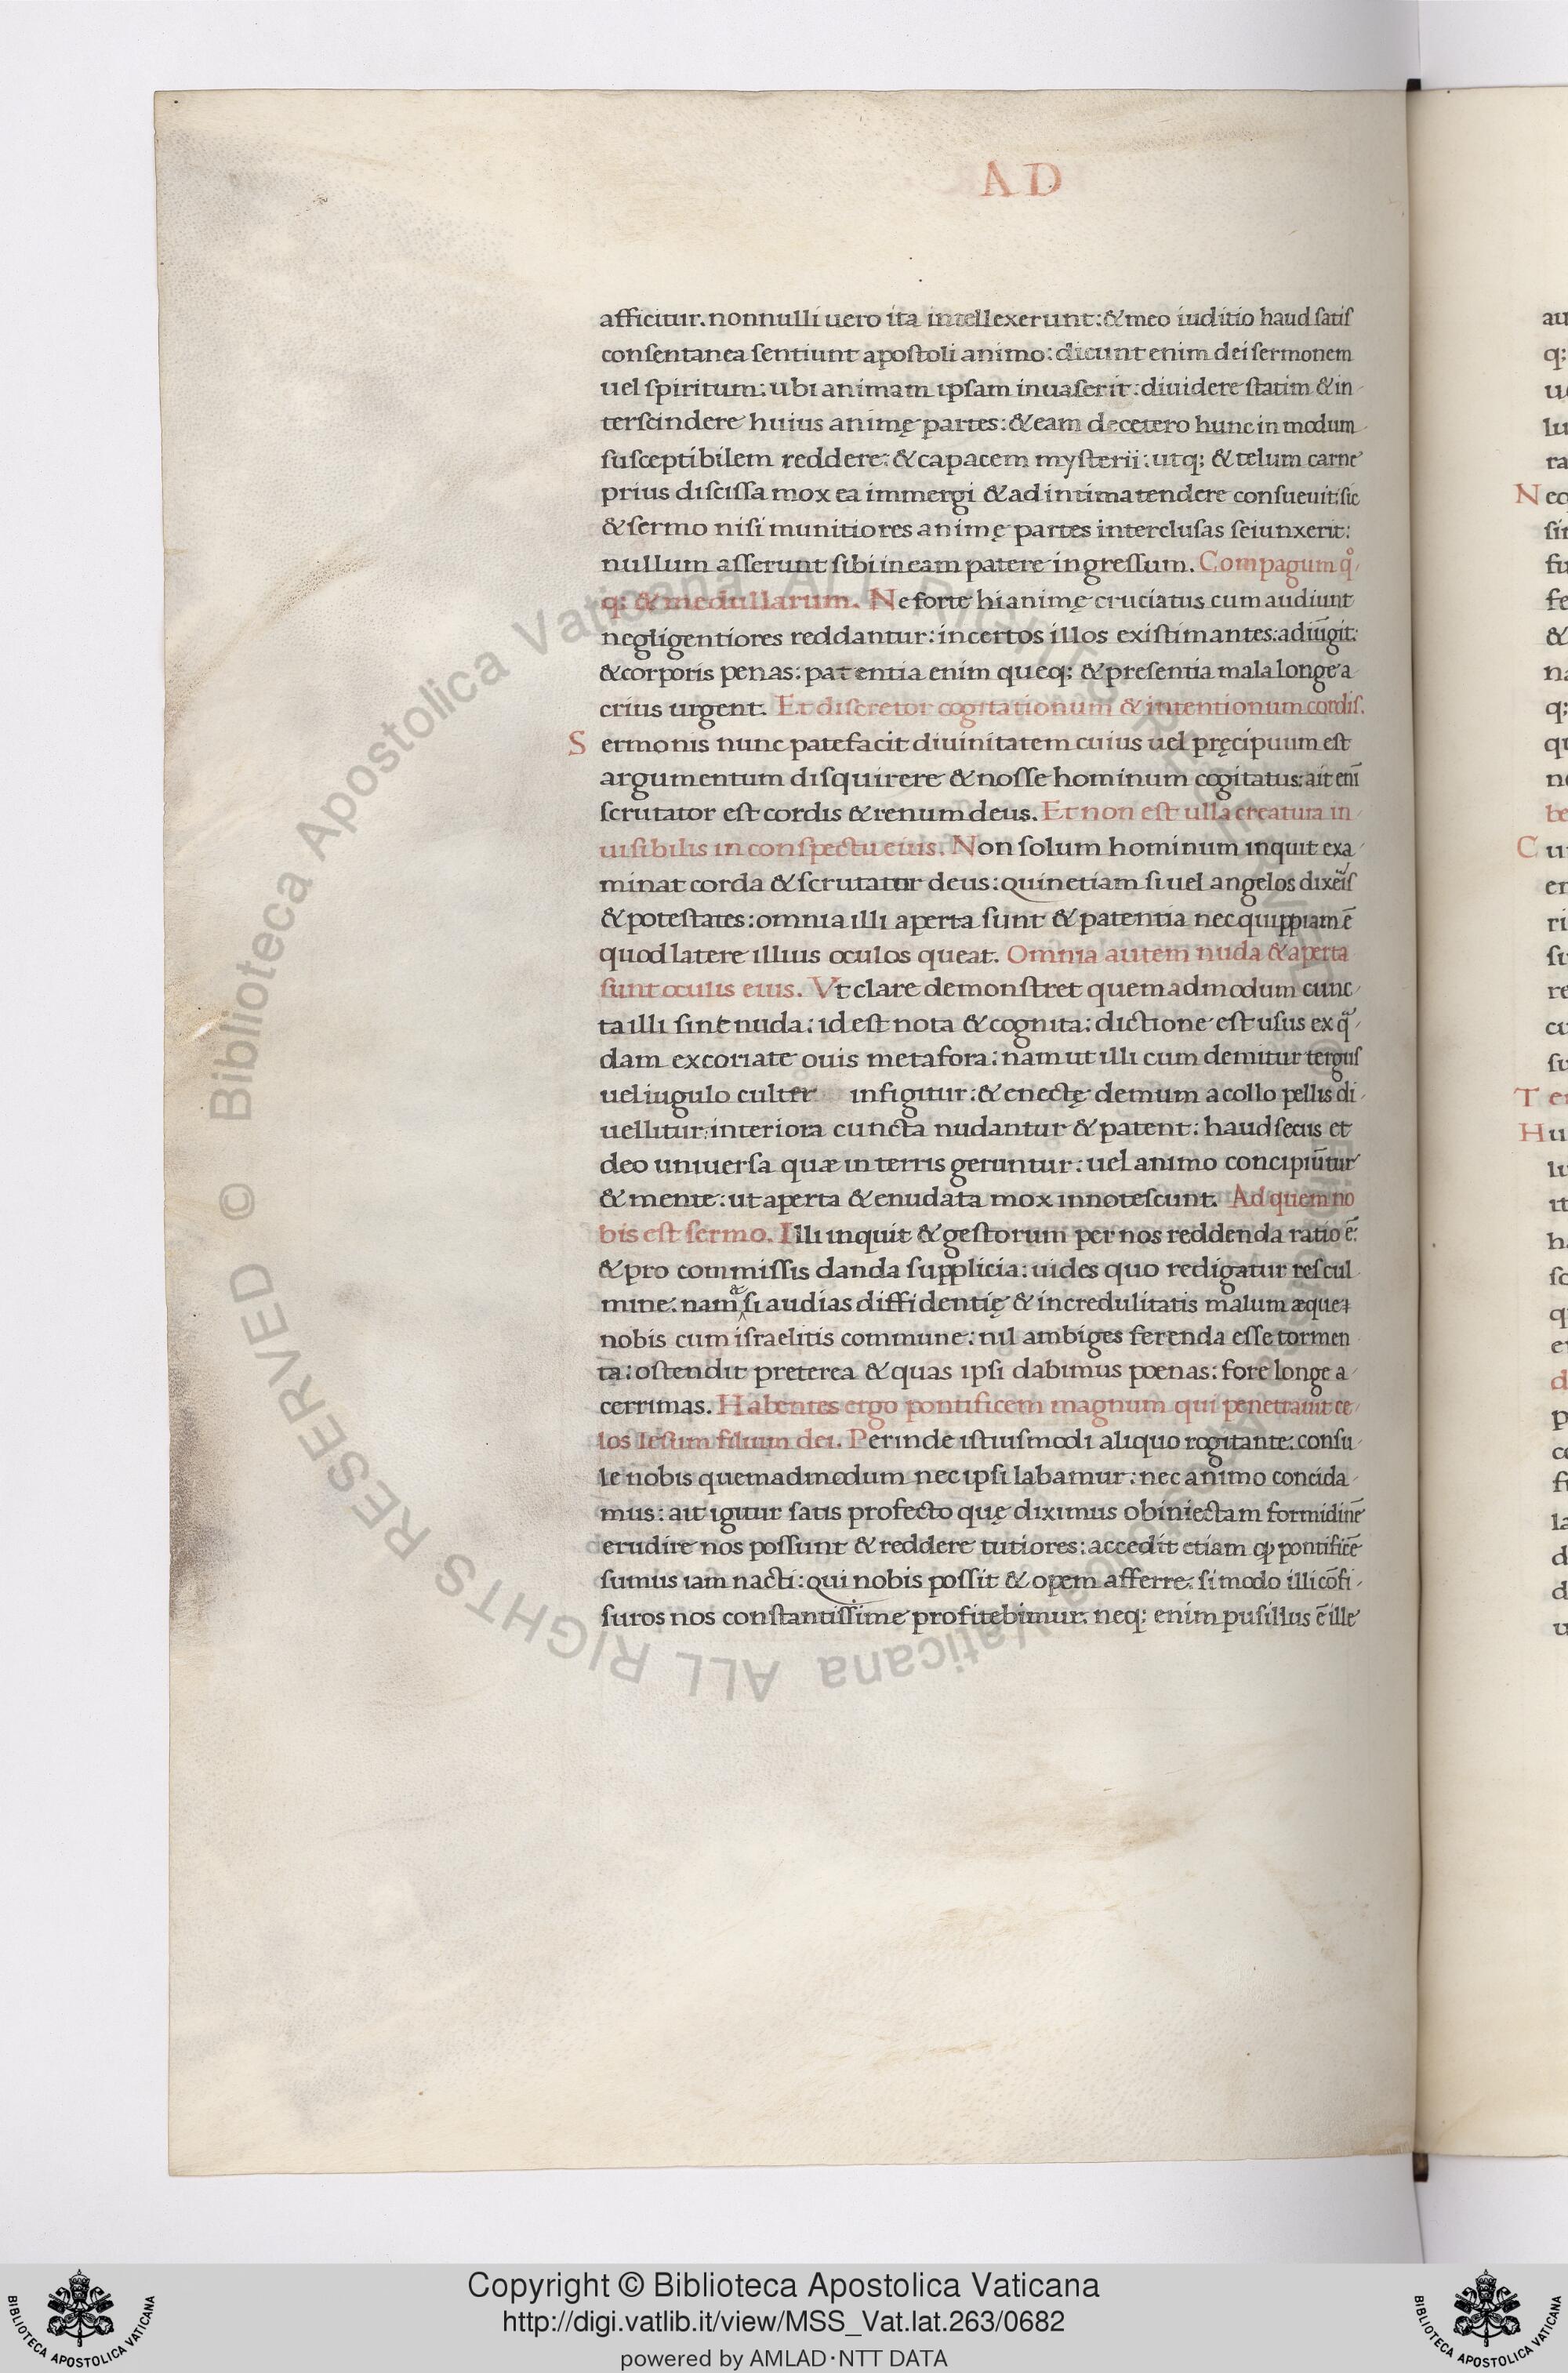 AD
afficitur. nonnulli uero ita intellexerunt: & meo iuditio haud satis
consentanea sentiunt apostoli animo: dicunt enim dei sermonem
uel spiritum: ubi animam ipsam inuaserit: diuidere statim & in
terscindere huius animę partes: & eam decetero hunc in modum
susceptibilem reddere: & capacem mysterii: utq; & telum carne
prius discissa mox ea immergi & ad intima tendere consueuit: sic
& sermo nisi munitiores animę partes interclusas seiunxerit:
nullum asserunt sibi in eam patere ingressum. Compagum qͦ
q; & medullarum. Ne forte hi animę cruciatus cum audiunt
negligentiores reddantur: incertos illos existimantes: adiūgit:
& corporis penas: patentia enim queq; & presentia mala longe a
crius urgent. Et discretor cogitationum & intentionum cordis.
Sermonis nunc patefacit diuinitatem cuius uel pręcipuum est
argumentum disquirere & nosse hominum cogitatus: ait eni̅
scrutator est cordis & renum deus. Et non est ulla creatura in
uisibilis in conspectu eius. Non solum hominum inquit exa
minat corda & scrutatur deus: quinetiam si uel angelos dixe̅is
& potestates: omnia illi aperta sunt & patentia nec quippiam e̅
quod latere illius oculos queat. Omnia autem nuda & aperta
sunt oculis eius. Vt clare demonstret quemadmodum cunc
ta illi sint nuda: id est nota & cognita: dictione est usus ex q̅
dam excoriate ouis metafora: nam ut illi cum demitur tergus
uel iugulo culter infigitur: & enectę demum a collo pellis di
uellitur: interiora cuncta nudantur & patent: haud secus et
deo uniuersa quæ in terris geruntur: uel animo concipiūtur
& mente: ut aperta & enudata mox innotescunt. Ad quem no
bis est sermo. Illi inquit & gestorum per nos reddenda ratio e̅:
& pro commissis danda supplicia: uides quo redigatur res cul
mine: nam si audias diffidentię & incredulitatis malum æque
nobis cum israelitis commune: nil ambiges ferenda esse tormen
ta: ostendit preterea & quas ipsi dabimus poenas: fore longe a
cerrimas. Habentes ergo pontificem magnum qui penetrauit ce
los Iesum filium dei. Perinde istiusmodi aliquo rogitante: consu
le nobis quemadmodum nec ipsi labamur: nec animo concida
mus: ait igitur satis profecto quę diximus ob iniectam formidine̅
erudire nos possunt & reddere tutiores: accedit etiam ꝙ pontifice̅
sumus iam nacti: qui nobis possit & opem afferre: si modo illi co̅fi
suros nos constantissime profitebimur. neq; enim pusillus e̅ ille
© Biblioteca Apostolica Vaticana ALL RIGHTS RESERVED
Copyright © Biblioteca Apostolica Vaticana
http://digi.vatlib.it/view/MSS_Vat.lat.263/0682
powered by AMLAD·NTT DATA
BIBLIOTECA APOSTOLICA VATICANA
BIBLIOTECA APOSTOLICA VATICANA